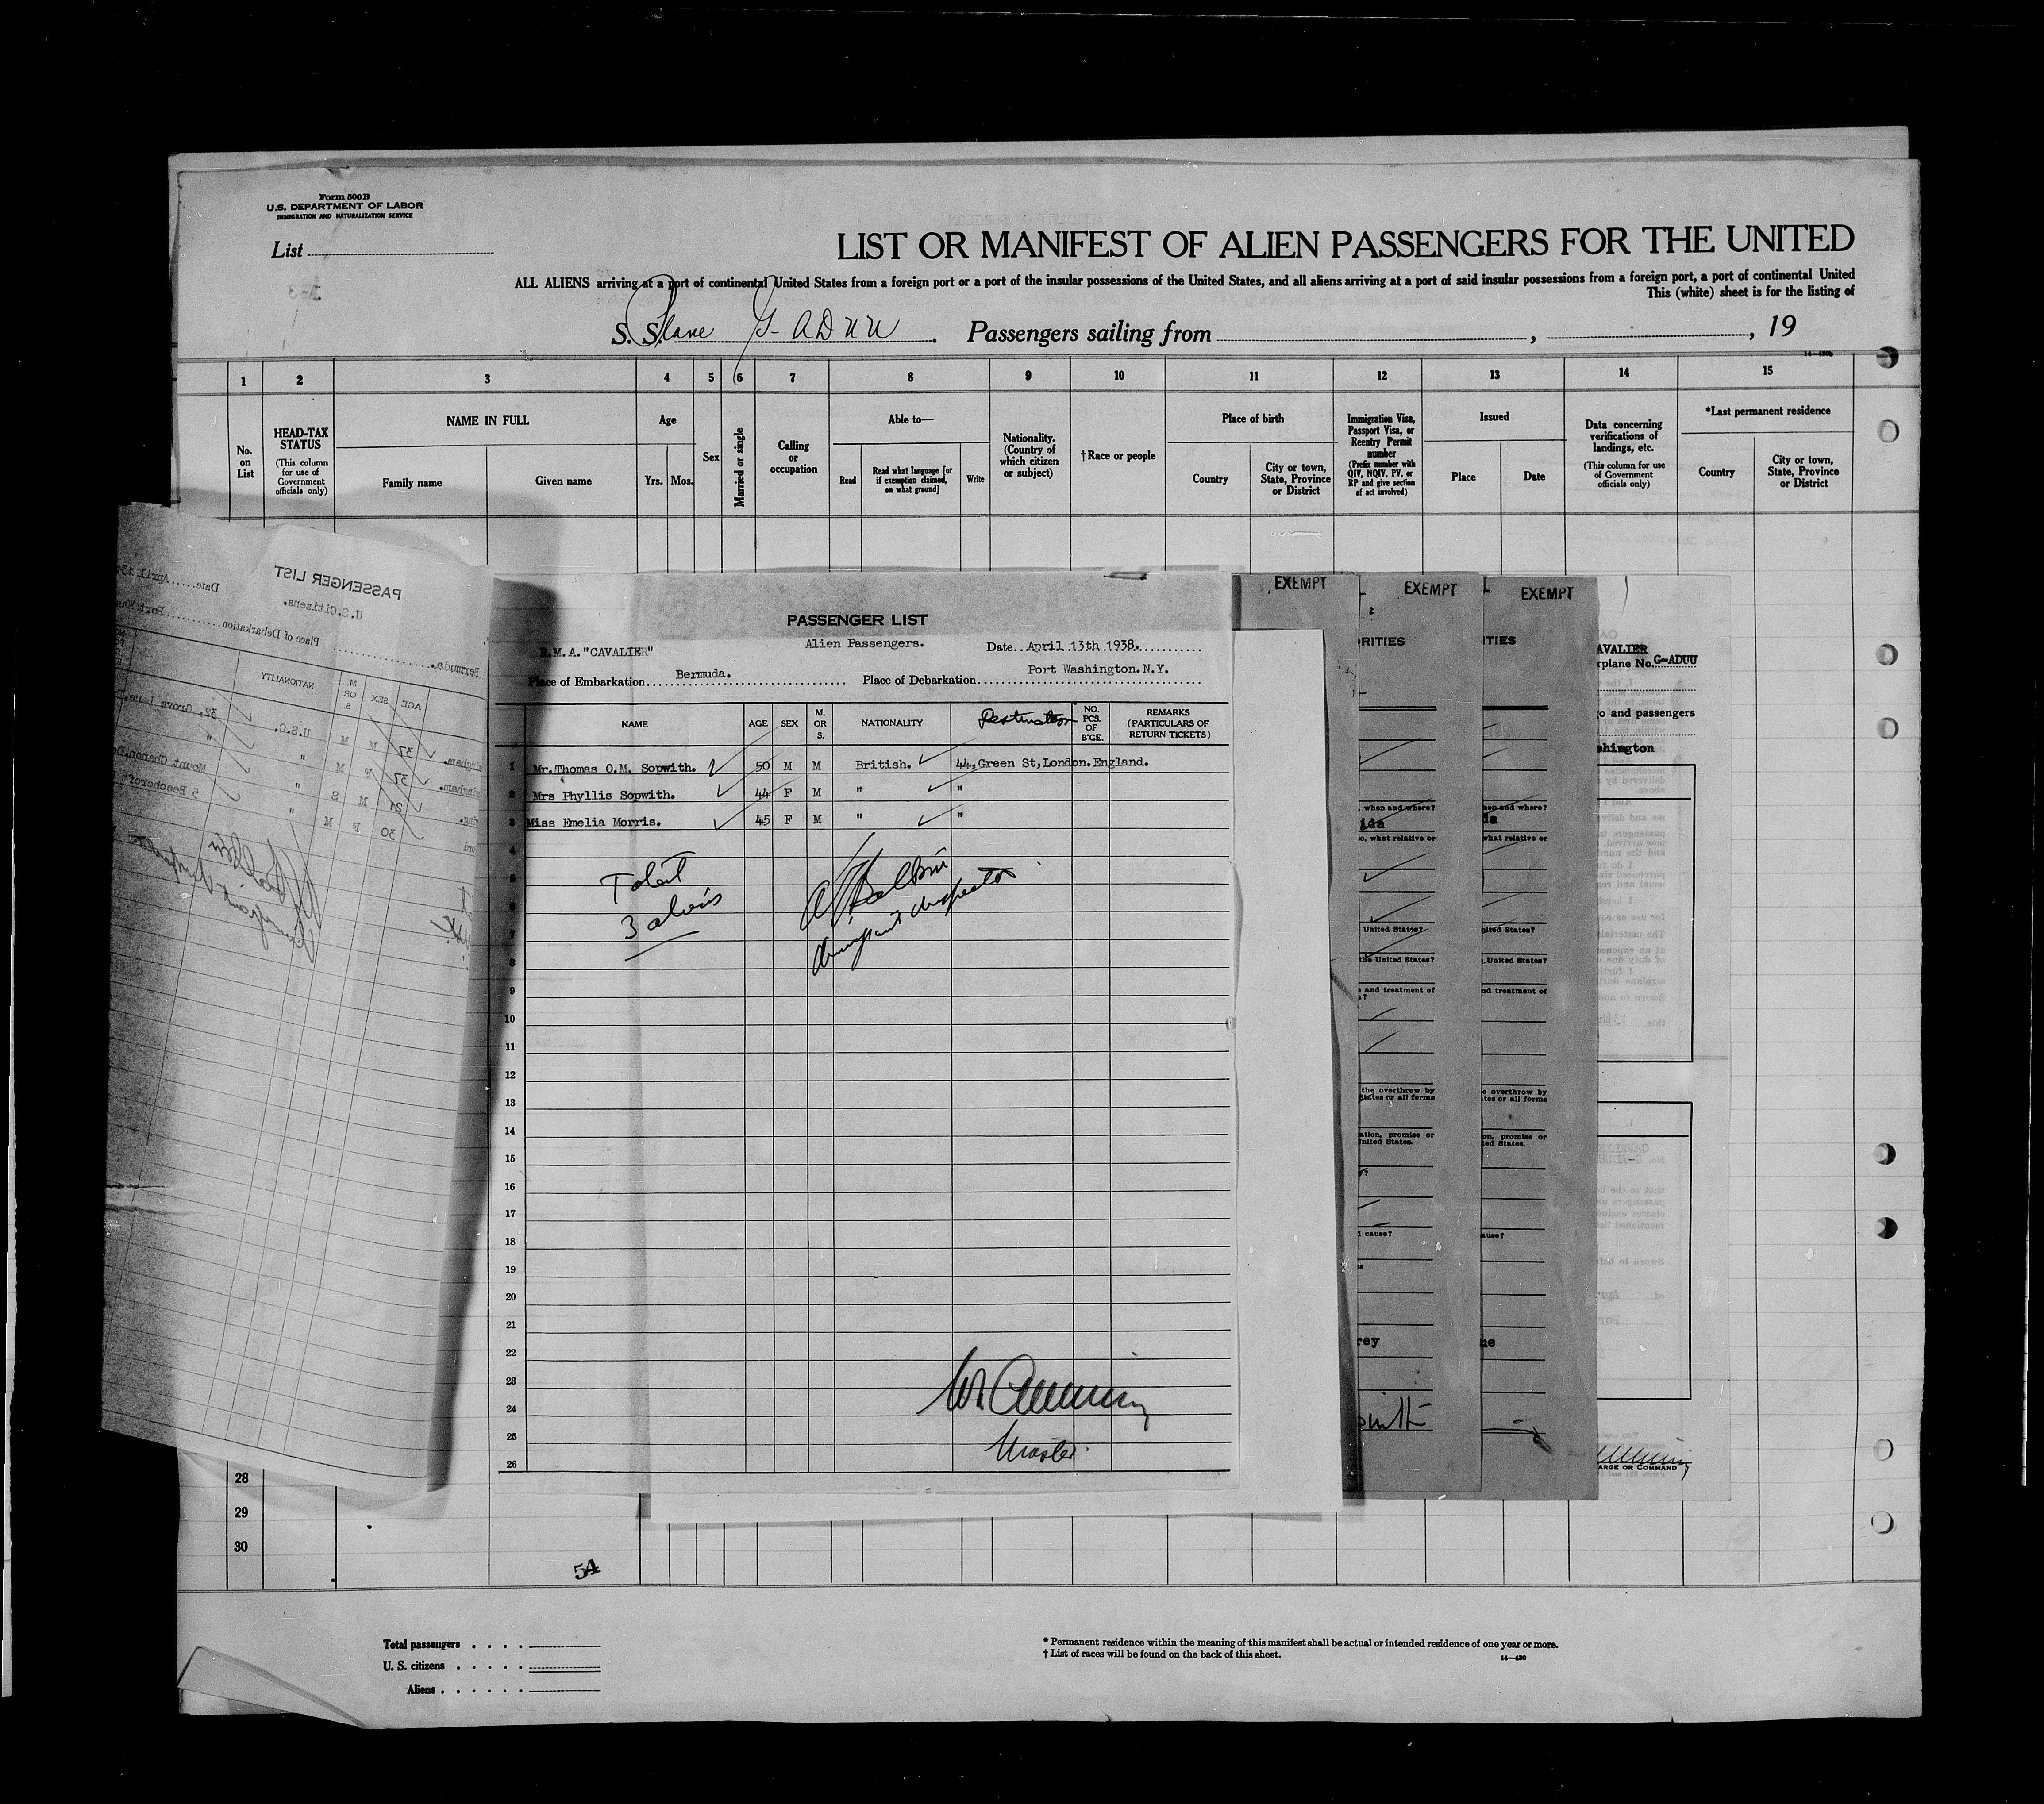 Form 500B
U.S. DEPARTMENT OF LABOR
IMMIGRATION AND NATURALIZATION SERVICE
List
LIST OR MANIFEST OF ALIEN PASSENGERS FOR THE UNITED
ALL ALIENS arriving at a port of continental United States from a foreign port or a port of the insular possessions of the United States, and all aliens arriving at a port of said insular possessions from a foreign port, a port of continental United
This (white) sheet is for the listing of
S. S. Plane G-ADUU. Passengers sailing from , , 19
14-430
1 2 3 4 5 6 7 8 9 10 11 12 13 14 15
No. on List
HEAD-TAX STATUS
(This column for use of Government officials only)
NAME IN FULL
Family name
Given name
Age
Yrs. Mos.
Sex
Married or single
Calling or occupation
Able to—
Read
Read what language [or if exemption claimed, on what ground]
Write
Nationality. (Country of which citizen or subject)
†Race or people
Place of birth
Country
City or town, State, Province or District
Immigration Visa, Passport Visa, or Reentry Permit number
(Prefix number with QIV, NQIV, PV, or RP and give section of act involved)
Issued
Place
Date
Data concerning verifications of landings, etc.
(This column for use of Government officials only)
*Last permanent residence
Country
City or town, State, Province or District
PASSENGER LIST
U.S.Citizens.
Date....April 13
Place of Debarkation
Bermuda.
AGE SEX M. OR S. NATIONALITY
37 M M U.S.C. 32, Grove Lane.
37 F M "
21 M S " Mount Chanon.
30 F M " 5 Beechcroft
PASSENGER LIST
R.M.A."CAVALIER"
Alien Passengers.
Date..April 13th 1938.
Place of Embarkation....Bermuda.
Place of Debarkation Port Washington.N.Y.
NAME AGE SEX M. OR S. NATIONALITY Destination NO. PCS. OF B'GE. REMARKS (PARTICULARS OF RETURN TICKETS)
1 Mr.Thomas O.M. Sopwith. 50 M M British. 44,Green St,London.England.
2 Mrs Phyllis Sopwith. 44 F M " "
3 Miss Emelia Morris. 45 F M " "
4
5
6
7
8
9
10
11
12
13
14
15
16
17
18
19
20
21
22
23
24
25
26
Total
3 aliens
Immigrant Inspector
Master
EXEMPT
EXEMPT
EXEMPT
ORITIES
ITIES
when and where?
ida
o, what relative or
what relative or
United States?
the United States?
and treatment of
the overthrow by
States or all forms
ation, promise or
United States.
cause?
rey
ue
AVALIER
rplane No. G-ADUU
go and passengers
shington
ARGE OR COMMAND
28
29
30
54
Total passengers
U. S. citizens
Aliens
* Permanent residence within the meaning of this manifest shall be actual or intended residence of one year or more.
† List of races will be found on the back of this sheet.
14—430